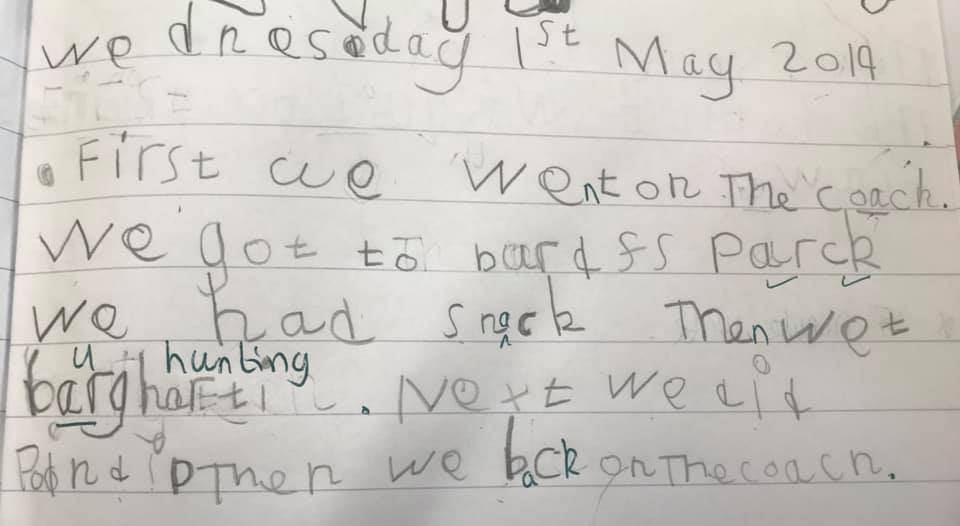 wednesday 1st May 2019
First we went on The coach.
We got to bardfs Parck
we had snack Then wet
u hunting
barg . Next we did
Pondip Then we back on The coach.